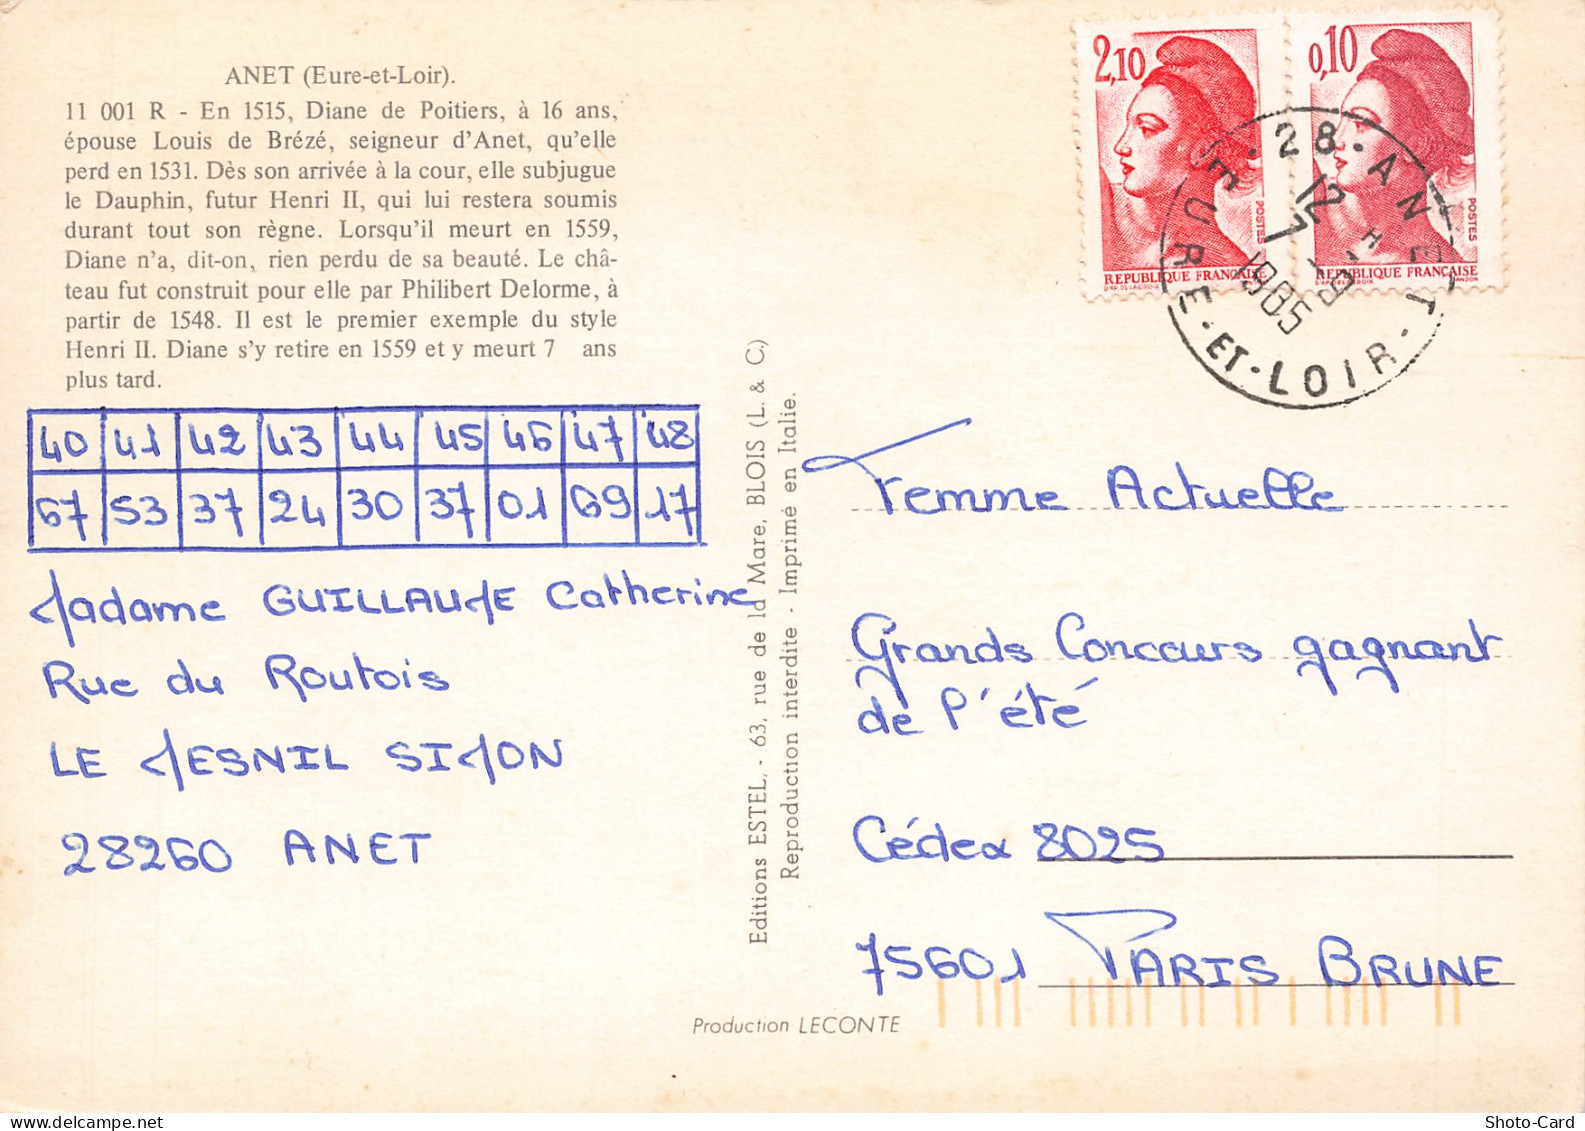 ANET (Eure-et-Loir).
11 001 R - En 1515, Diane de Poitiers, à 16 ans,
épouse Louis de Brézé, seigneur d'Anet, qu'elle
perd en 1531. Dès son arrivée à la cour, elle subjugue
le Dauphin, futur Henri II, qui lui restera soumis
durant tout son règne. Lorsqu'il meurt en 1559,
Diane n'a, dit-on, rien perdu de sa beauté. Le châ-
teau fut construit pour elle par Philibert Delorme, à
partir de 1548. Il est le premier exemple du style
Henri II. Diane s'y retire en 1559 et y meurt 7 ans
plus tard.
40 41 42 43 44 45 46 47 48
67 53 37 24 30 37 01 69 17
Madame GUILLAUME Catherine
Rue du Routois
LE MESNIL SIMON
28260 ANET
Editions ESTEL, - 63, rue de la Mare, BLOIS (L. & C.)
Reproduction interdite - Imprimé en Italie.
Production LECONTE
2,10
POSTES
REPUBLIQUE FRANÇAISE
0,10
POSTES
REPUBLIQUE FRANÇAISE
28 - ANET
EURE-ET-LOIR
12
7
1985
Femme Actuelle
Grands Concours gagnant
de l'été
Cédex 8025
75601 PARIS BRUNE
Shoto-Card